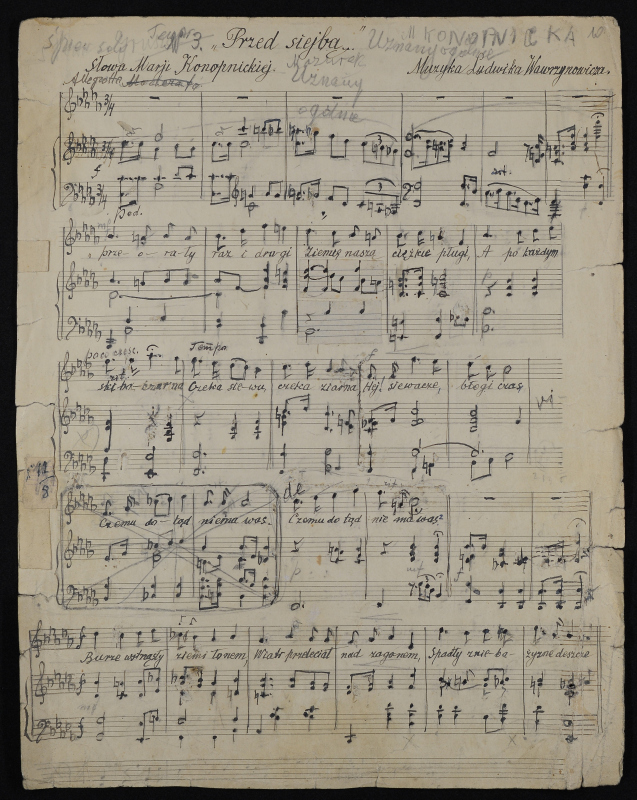 N 3. „Przed siejbą..." M KONOPNICKA
Uznany ogólnie
Słowa Marji Konopnickiej. Mazurek Muzyka Ludwika Wawrzynowicza.
Allegretto Moderato Uznany
ogólnie
Ped.
prze-o-rały raz i drugi Ziemię naszą ciężkie pługi, A po każdym
poco cresc. Tempo
skiba czarna Czeka siewu, czeka ziarna, Hej, siewacze, błogi czas
vi
de
Czemu do-tąd niema was. Czemu do tąd nie ma was?
Burze wstrząsły ziemi łonem, Wiatr przeleciał nad zagonem, Spadły znie ba żyzne deszcze